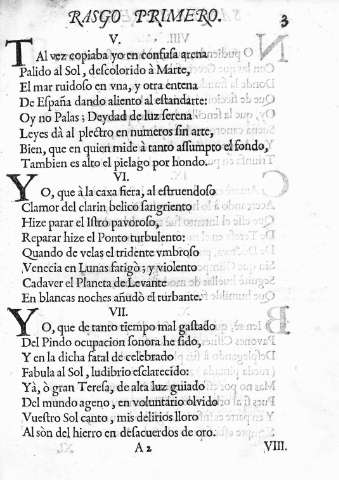 RASGO PRIMERO. 3
V.
TAl vez copiaba yo en confusa arena
Palido al Sol, descolorido à Marte,
El mar ruidoso en vna, y otra entena
De España dando aliento al estandarte:
Oy no Palas; Deydad de luz serena
Leyes dà al plestro en numeros sin arte,
Bien, que en quien mide à tanto assumpto el fondo,
Tambien es alto el pielago por hondo.
VI.
YO, que à la caxa fiera, al estruendoso
Clamor del clarin belico sangriento
Hize parar el Istro pavoroso,
Reparar hize el Ponto turbulento:
Quando de velas el tridente vmbroso
Venecia en Lunas fatigò; y violento
Cadaver el Planeta de Levante
En blancas noches añudò el turbante.
VII.
YO, que de tanto tiempo mal gastado
Del Pindo ocupacion sonora he sido,
Y en la dicha fatal de celebrado
Fabula al Sol, ludibrio esclarecido:
Yà, ò gran Teresa, de alta luz guiado
Del mundo ageno, en voluntario olvido
Vuestro Sol canto, mis delirios lloro
Al sòn del hierro en desacuerdos de oro.
A2 VIII.